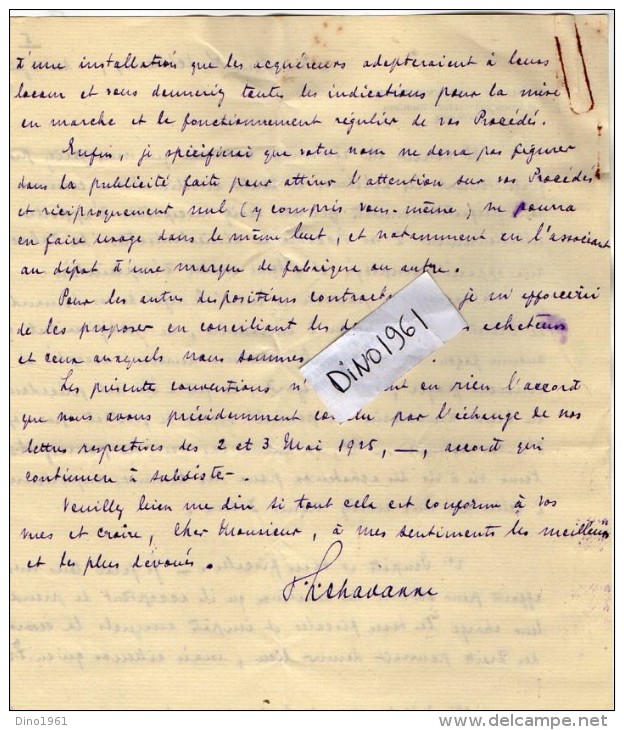 d'une installation que les acquéreurs adapteraient à leurs
locaux et vous donneriez toutes les indications pour la mise
en marche et le fonctionnement régulier de vos Procédés.
Enfin, je spécifierai que votre nom ne devra pas figurer
dans la publicité faite pour attirer l'attention sur vos Procédés
et réciproquement nul (y compris vous-même) ne pourra
en faire usage dans le même but, et notamment en l'associant
au dépôt d'une marque de fabrique ou autre.
Pour les autres dispositions je m'efforcerai
de les proposer en conciliant les acheteurs
et ceux auxquels nous sommes
DiNO1961
Les présente conventions en rien l'accord
que nous avons précédemment par l'échange de nos
lettres respectives des 2 et 3 Mai 1925, —, accord qui
continuera à subsister.
Veuillez bien me dire si tout cela est conforme à vos
vues et croire, Cher Monsieur, à mes sentiments les meilleurs
et les plus dévoués.
Dino1961
www.delcampe.net